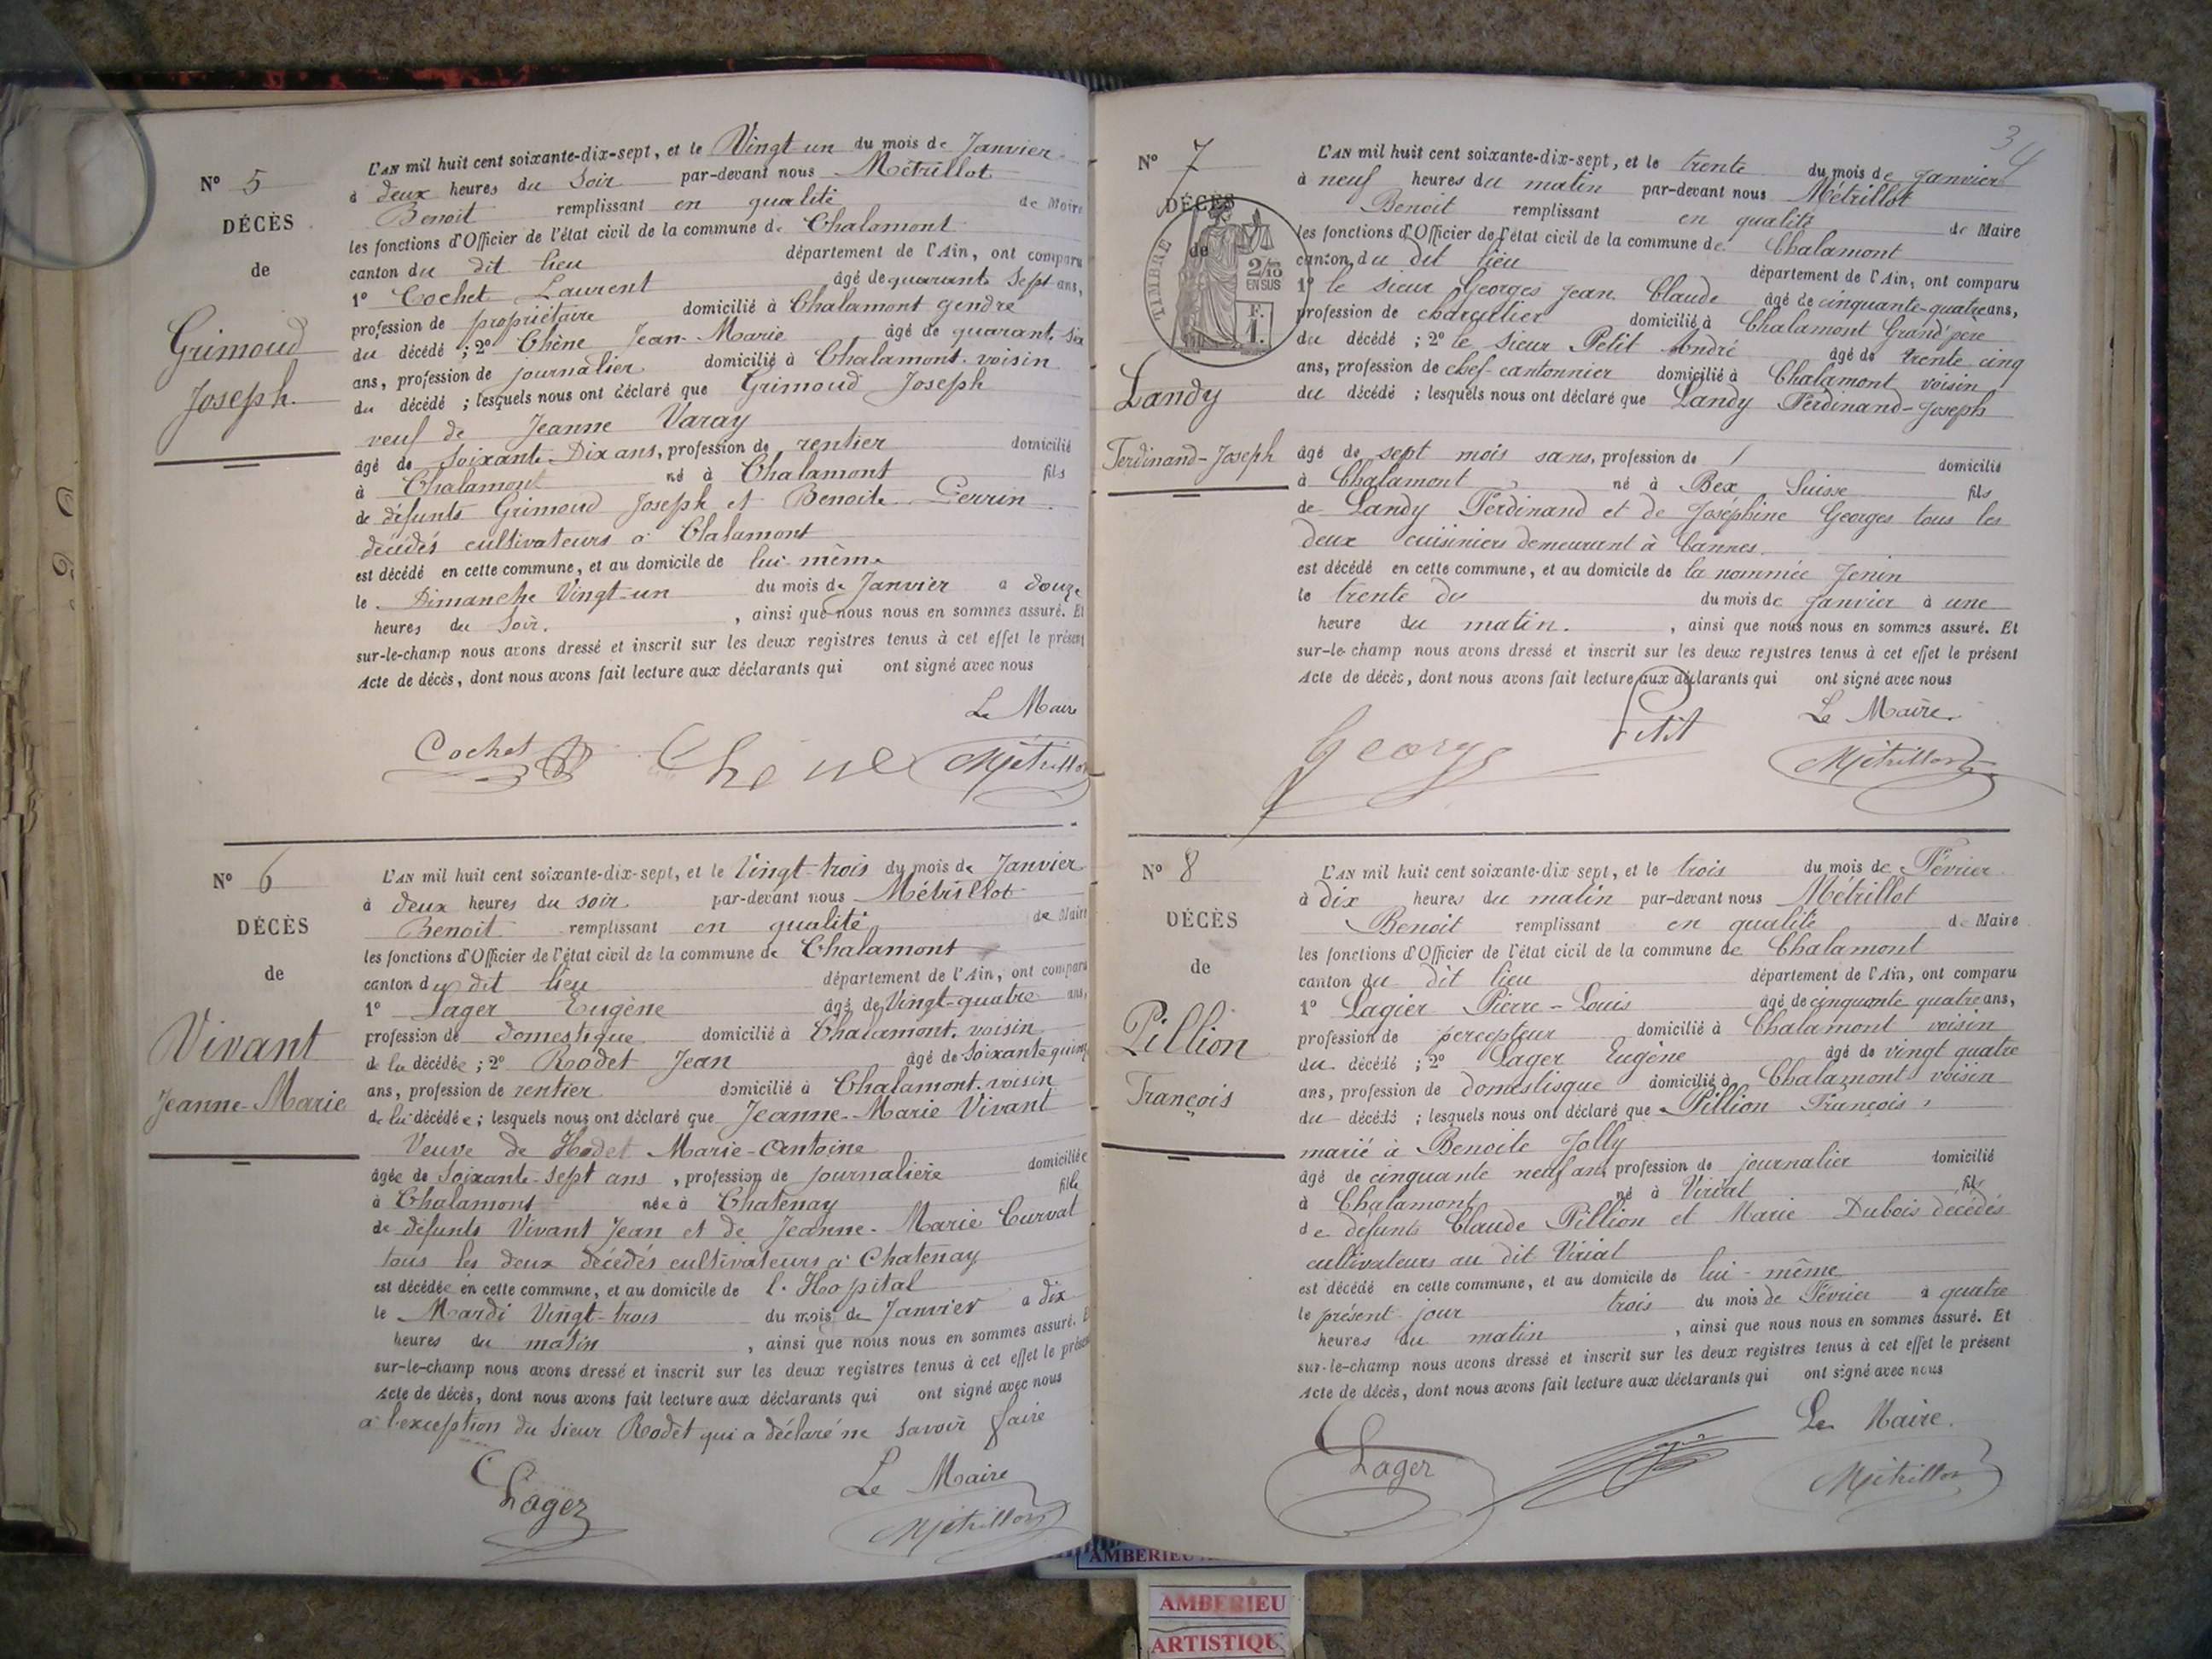 N° 5
DÉCÈS
de
Grimoud
Joseph.
L'AN mil huit cent soixante-dix-sept, et le Vingt un du mois de Janvier
à deux heures du Soir par-devant nous Métrillot
Benoit remplissant en qualité de Maire
les fonctions d'Officier de l'état civil de la commune de Chalamont
canton du dit lieu département de l'Ain, ont comparu
1° Cochet Laurent âgé de quarante Sept ans,
profession de propriétaire domicilié à Chalamont gendre
du décédé ; 2° Chêne Jean-Marie âgé de quarant. six
ans, profession de journalier domicilié à Chalamont. voisin
du décédé ; lesquels nous ont déclaré que Grimoud Joseph
veuf de Jeanne Varay
âgé de Soixante-Dix ans, profession de rentier domicilié
à Chalamont né à Chalamont fils
de défunts Grimoud Joseph et Benoite Perrin
décédés cultivateurs à Chalamont
est décédé en cette commune, et au domicile de lui-même
le Dimanche Vingt-un du mois de Janvier a douze
heures du Soir. , ainsi que nous nous en sommes assuré. Et
sur-le-champ nous avons dressé et inscrit sur les deux registres tenus à cet effet le présent
Acte de décès, dont nous avons fait lecture aux déclarants qui ont signé avec nous
Le Maire
Cochet Chêne Métrillot
N° 6
DÉCÈS
de
Vivant
Jeanne-Marie
L'AN mil huit cent soixante-dix-sept, et le Vingt-trois du mois de Janvier
à deux heures du soir par-devant nous Métrillot
Benoit remplissant en qualité de Maire
les fonctions d'Officier de l'état civil de la commune de Chalamont
canton du dit lieu département de l'Ain, ont comparu
1° Lager Eugène âgé de Vingt-quatre ans,
profession de domestique domicilié à Chalamont. voisin
de la décédée ; 2° Rodet Jean âgé de Soixante quinz
ans, profession de rentier domicilié à Chalamont. voisin
de la décédée ; lesquels nous ont déclaré que Jeanne-Marie Vivant
Veuve de Hodet Marie-Antoine
âgée de Soixante-sept ans , profession de journaliere domiciliée
à Chalamont née à Chatenay fille
de défunts Vivant Jean et de Jeanne-Marie Curval
tous les deux décédés cultivateurs à Chatenay
est décédée en cette commune, et au domicile de l'Hopital
le Mardi Vingt-trois du mois de Janvier a dix
heures du matin , ainsi que nous nous en sommes assuré. E
sur-le-champ nous avons dressé et inscrit sur les deux registres tenus à cet effet le présen
Acte de décès, dont nous avons fait lecture aux déclarants qui ont signé avec nous
a l'exception du Sieur Rodet qui a déclaré ne savoir faire
Le Maire
Lager Métrillot
34
N° 7
DÉCÈS
de
TIMBRE
2/10
EN SUS
F.
1.
Landy
Ferdinand-Joseph
L'AN mil huit cent soixante-dix-sept, et le trente du mois de janvier
à neuf heures du matin par-devant nous Métrillot
Benoit remplissant en qualité de Maire
les fonctions d'Officier de l'état civil de la commune de Chalamont
canton du dit lieu département de l'Ain, ont comparu
1° le sieur Georges Jean Claude âgé de cinquante-quatre ans,
profession de charcutier domicilié à Chalamont Grand'père
du décédé ; 2° le sieur Petit André âgé de trente cinq
ans, profession de chef-cantonnier domicilié à Chalamont voisin
du décédé ; lesquels nous ont déclaré que Landy Ferdinand-Joseph
âgé de sept mois sans, profession de / domicilié
à Chalamont , né à Bex Suisse fils
de Landy Ferdinand et de Joséphine Georges tous les
deux cuisiniers demeurant à Cannes.
est décédé en cette commune, et au domicile de la nommée Jenin
le trente du du mois de janvier à une
heure du matin. , ainsi que nous nous en sommes assuré. Et
sur-le-champ nous avons dressé et inscrit sur les deux registres tenus à cet effet le présent
Acte de décès, dont nous avons fait lecture aux déclarants qui ont signé avec nous
Le Maire.
George Petit Métrillot
N° 8
DÉCÈS
de
Pillion
François
L'AN mil huit cent soixante-dix-sept, et le trois du mois de Février
à dix heures du matin par-devant nous Métrillot
Benoit remplissant en qualité de Maire
les fonctions d'Officier de l'état civil de la commune de Chalamont
canton du dit lieu département de l'Ain, ont comparu
1° Lagier Pierre-Louis âgé de cinquante quatre ans,
profession de percepteur domicilié à Chalamont voisin
du décédé ; 2° Lager Eugène âgé de vingt quatre
ans, profession de domestisque domicilié à Chalamont voisin
du décédé ; lesquels nous ont déclaré que Pillion François,
marié à Benoite Jolly
âgé de cinquante neuf ans, profession de journalier domicilié
à Chalamont né à Viriat fils
de défunts Claude Pillion et Marie Dubois décédés
cultivateurs au dit Viriat
est décédé en cette commune, et au domicile de lui-même
le présent jour trois du mois de Février à quatre
heures du matin , ainsi que nous nous en sommes assuré. Et
sur-le-champ nous avons dressé et inscrit sur les deux registres tenus à cet effet le présent
Acte de décès, dont nous avons fait lecture aux déclarants qui ont signé avec nous
Le Maire.
Lager Métrillot
AMBERIEU
AMBERIEU
ARTISTIQU